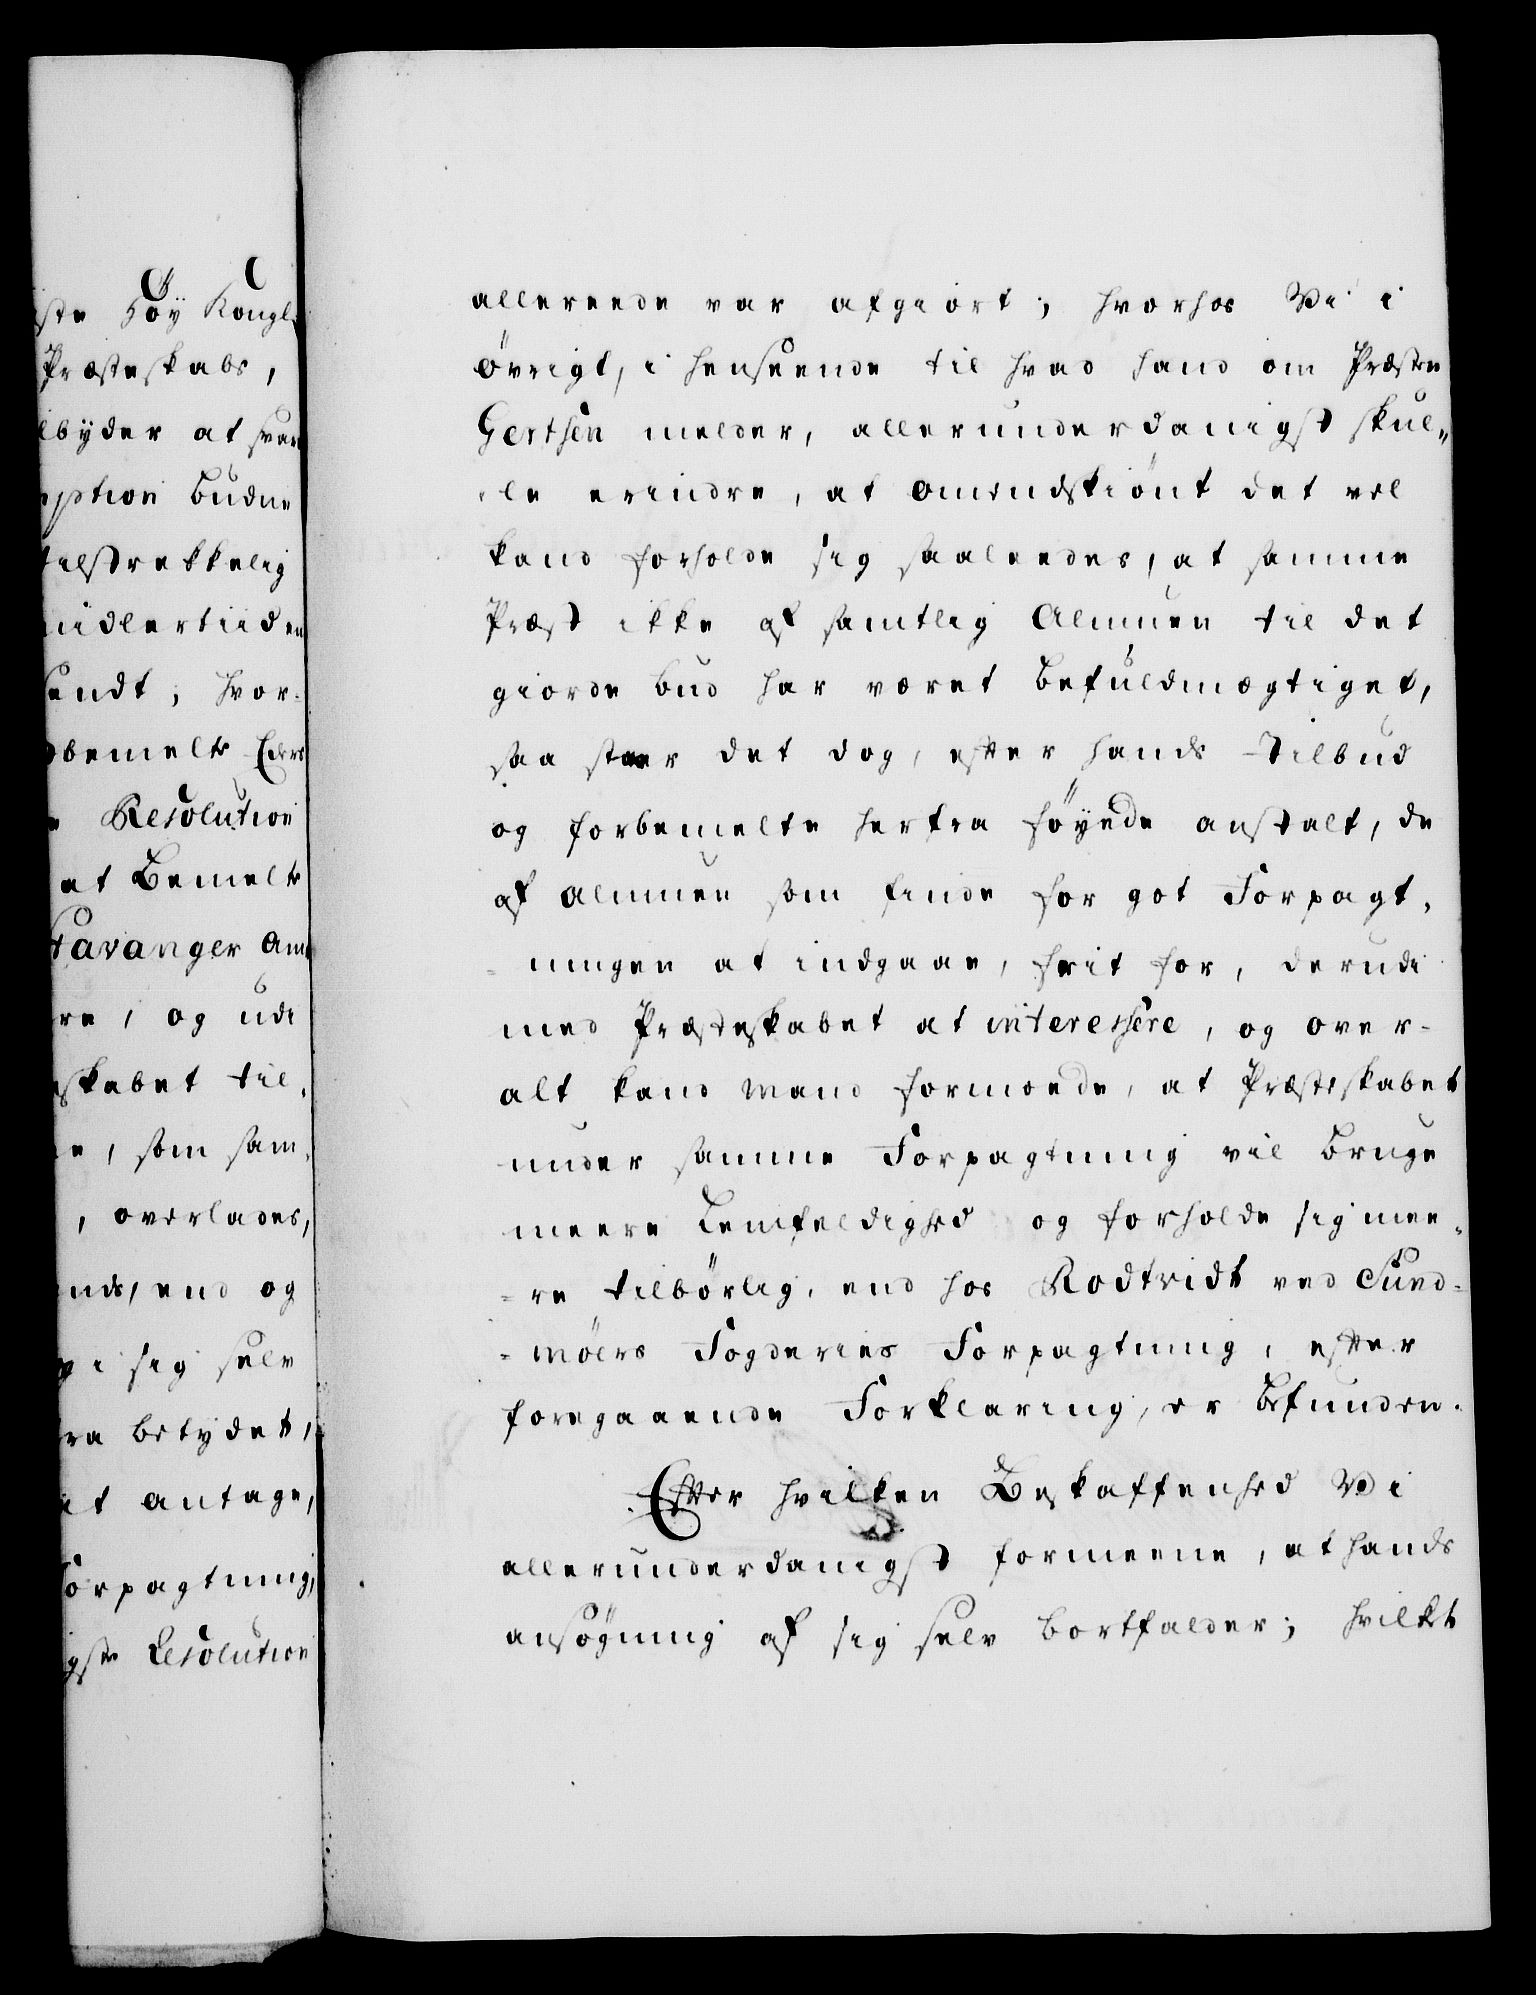 ste Høy Kongl.
Præsteskabs,
lbyder at svar
ption budne
tilstrekkelig
midlertiiden
sendt; hvor-
bemelte Eders
Resolution
at Bemelte
Stavanger Amt
re, og udi
skabet til-
e, som sam-
, overlades,
ends, end og
i sig selv
ra betydet,
at antage,
Forpagtning,
gste Resolution
allereede var afgiort; hvorhos Vi i
øvrigt, i henseende til hvad hand om Præsten
Gertsen melder, allerunderdanigst skul-
le erindre, at omendskiønt det vel
kand forholde sig saaleedes, at samme
Præst ikke af samtlig Almuen til det
giorde bud har været befuldmægtiget,
saa staaer det dog, efter hands Tilbud
og forbemelte herfra føyede anstalt, de
af almuen som finde for got Forpagt-
ningen at indgaae, frit for, derudi
med Præsteskabet at interessere, og over-
alt kand mand formoede, at Præsteskabet
under samme Forpagtning vil bruge
meere Lemfeldighed og forholde sig mee-
re tilbørlig, end hos Rodtvidt ved Sund-
møers Fogderies Forpagtning, efter
foregaaende Forklaring, er befunden.
Efter hvilken Beskaffenhed Vi
allerunderdanigst formeene, at hands
ansøgning af sig selv bortfalder; hvilket